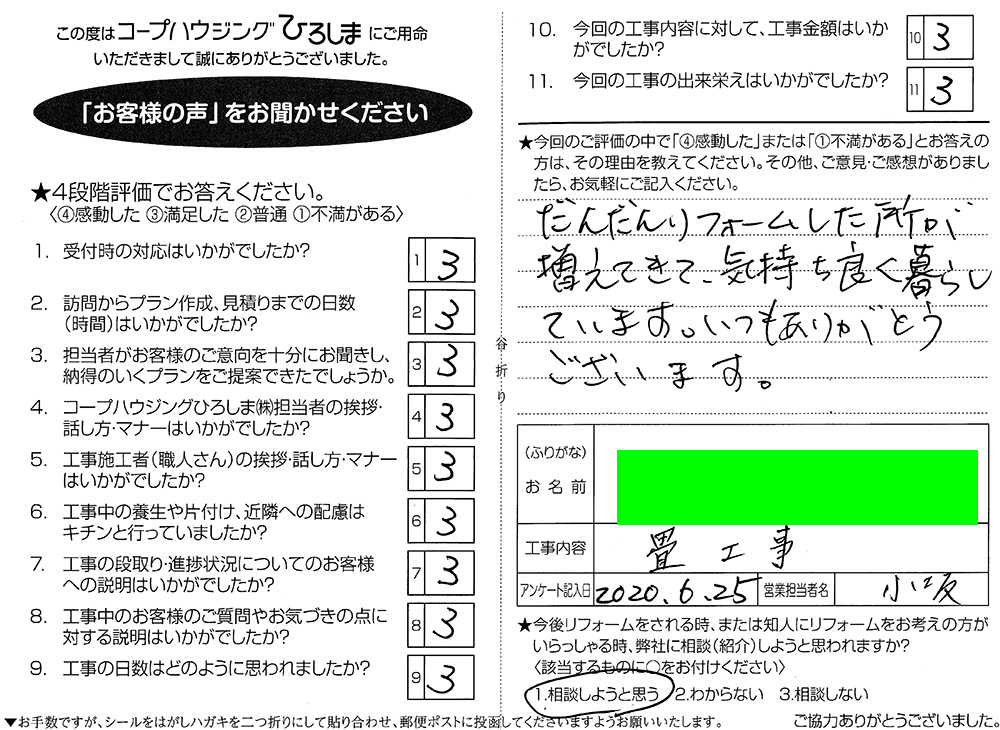 この度はコープハウジングひろしまにご用命
いただきまして誠にありがとうございました。
「お客様の声」をお聞かせください
★4段階評価でお答えください。
〈④感動した ③満足した ②普通 ①不満がある〉
1. 受付時の対応はいかがでしたか?
1 3
2. 訪問からプラン作成、見積りまでの日数
(時間)はいかがでしたか?
2 3
3. 担当者がお客様のご意向を十分にお聞きし、
納得のいくプランをご提案できたでしょうか。
3 3
4. コープハウジングひろしま㈱担当者の挨拶・
話し方・マナーはいかがでしたか?
4 3
5. 工事施工者(職人さん)の挨拶・話し方・マナー
はいかがでしたか?
5 3
6. 工事中の養生や片付け、近隣への配慮は
キチンと行っていましたか?
6 3
7. 工事の段取り・進捗状況についてのお客様
への説明はいかがでしたか?
7 3
8. 工事中のお客様のご質問やお気づきの点に
対する説明はいかがでしたか?
8 3
9. 工事の日数はどのように思われましたか?
9 3
谷折り
10. 今回の工事内容に対して、工事金額はいか
がでしたか?
10 3
11. 今回の工事の出来栄えはいかがでしたか?
11 3
★今回のご評価の中で「④感動した」または「①不満がある」とお答えの
方は、その理由を教えてください。その他、ご意見・ご感想がありまし
たら、お気軽にご記入ください。
だんだんリフォームした所が
増えてきて、気持ち良く暮らし
ています。いつもありがとう
ございます。
(ふりがな)
お名前
工事内容 畳工事
アンケート記入日 2020.6.25 営業担当者名 小坂
★今後リフォームをされる時、または知人にリフォームをお考えの方が
いらっしゃる時、弊社に相談(紹介)しようと思われますか?
〈該当するものに○をお付けください〉
1.相談しようと思う 2.わからない 3.相談しない
▼お手数ですが、シールをはがしハガキを二つ折りにして貼り合わせ、郵便ポストに投函してくださいますようお願いいたします。
ご協力ありがとうございました。